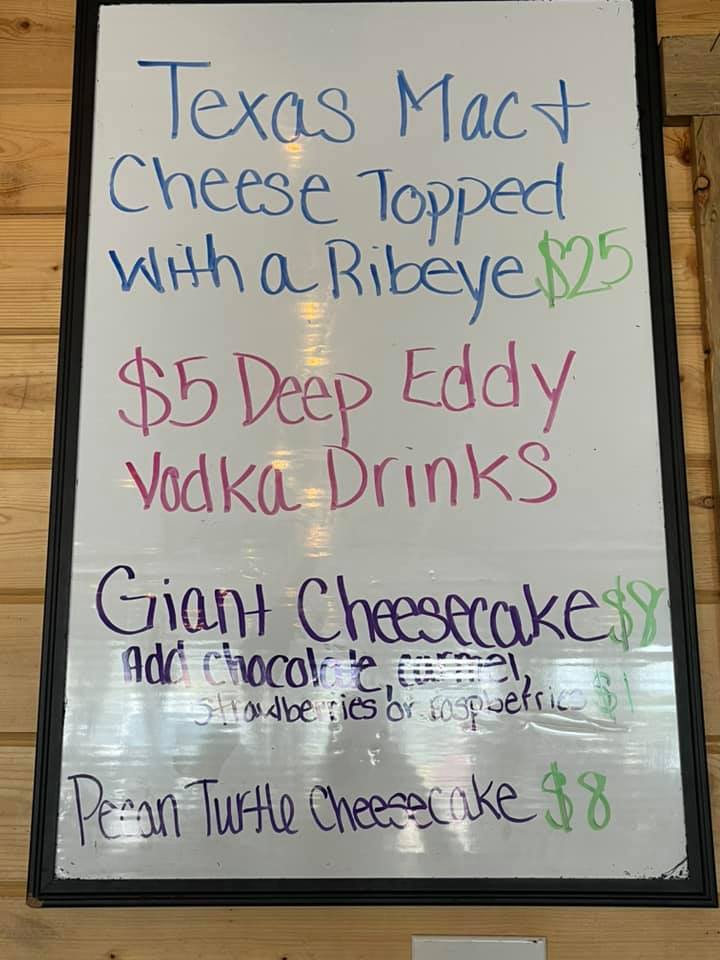 Texas Mac +
Cheese Topped
with a Ribeye $25
$5 Deep Eddy
Vodka Drinks
Giant Cheesecake $8
Add chocolate, carmel,
strawberries or raspberries $1
Pecan Turtle Cheesecake $8